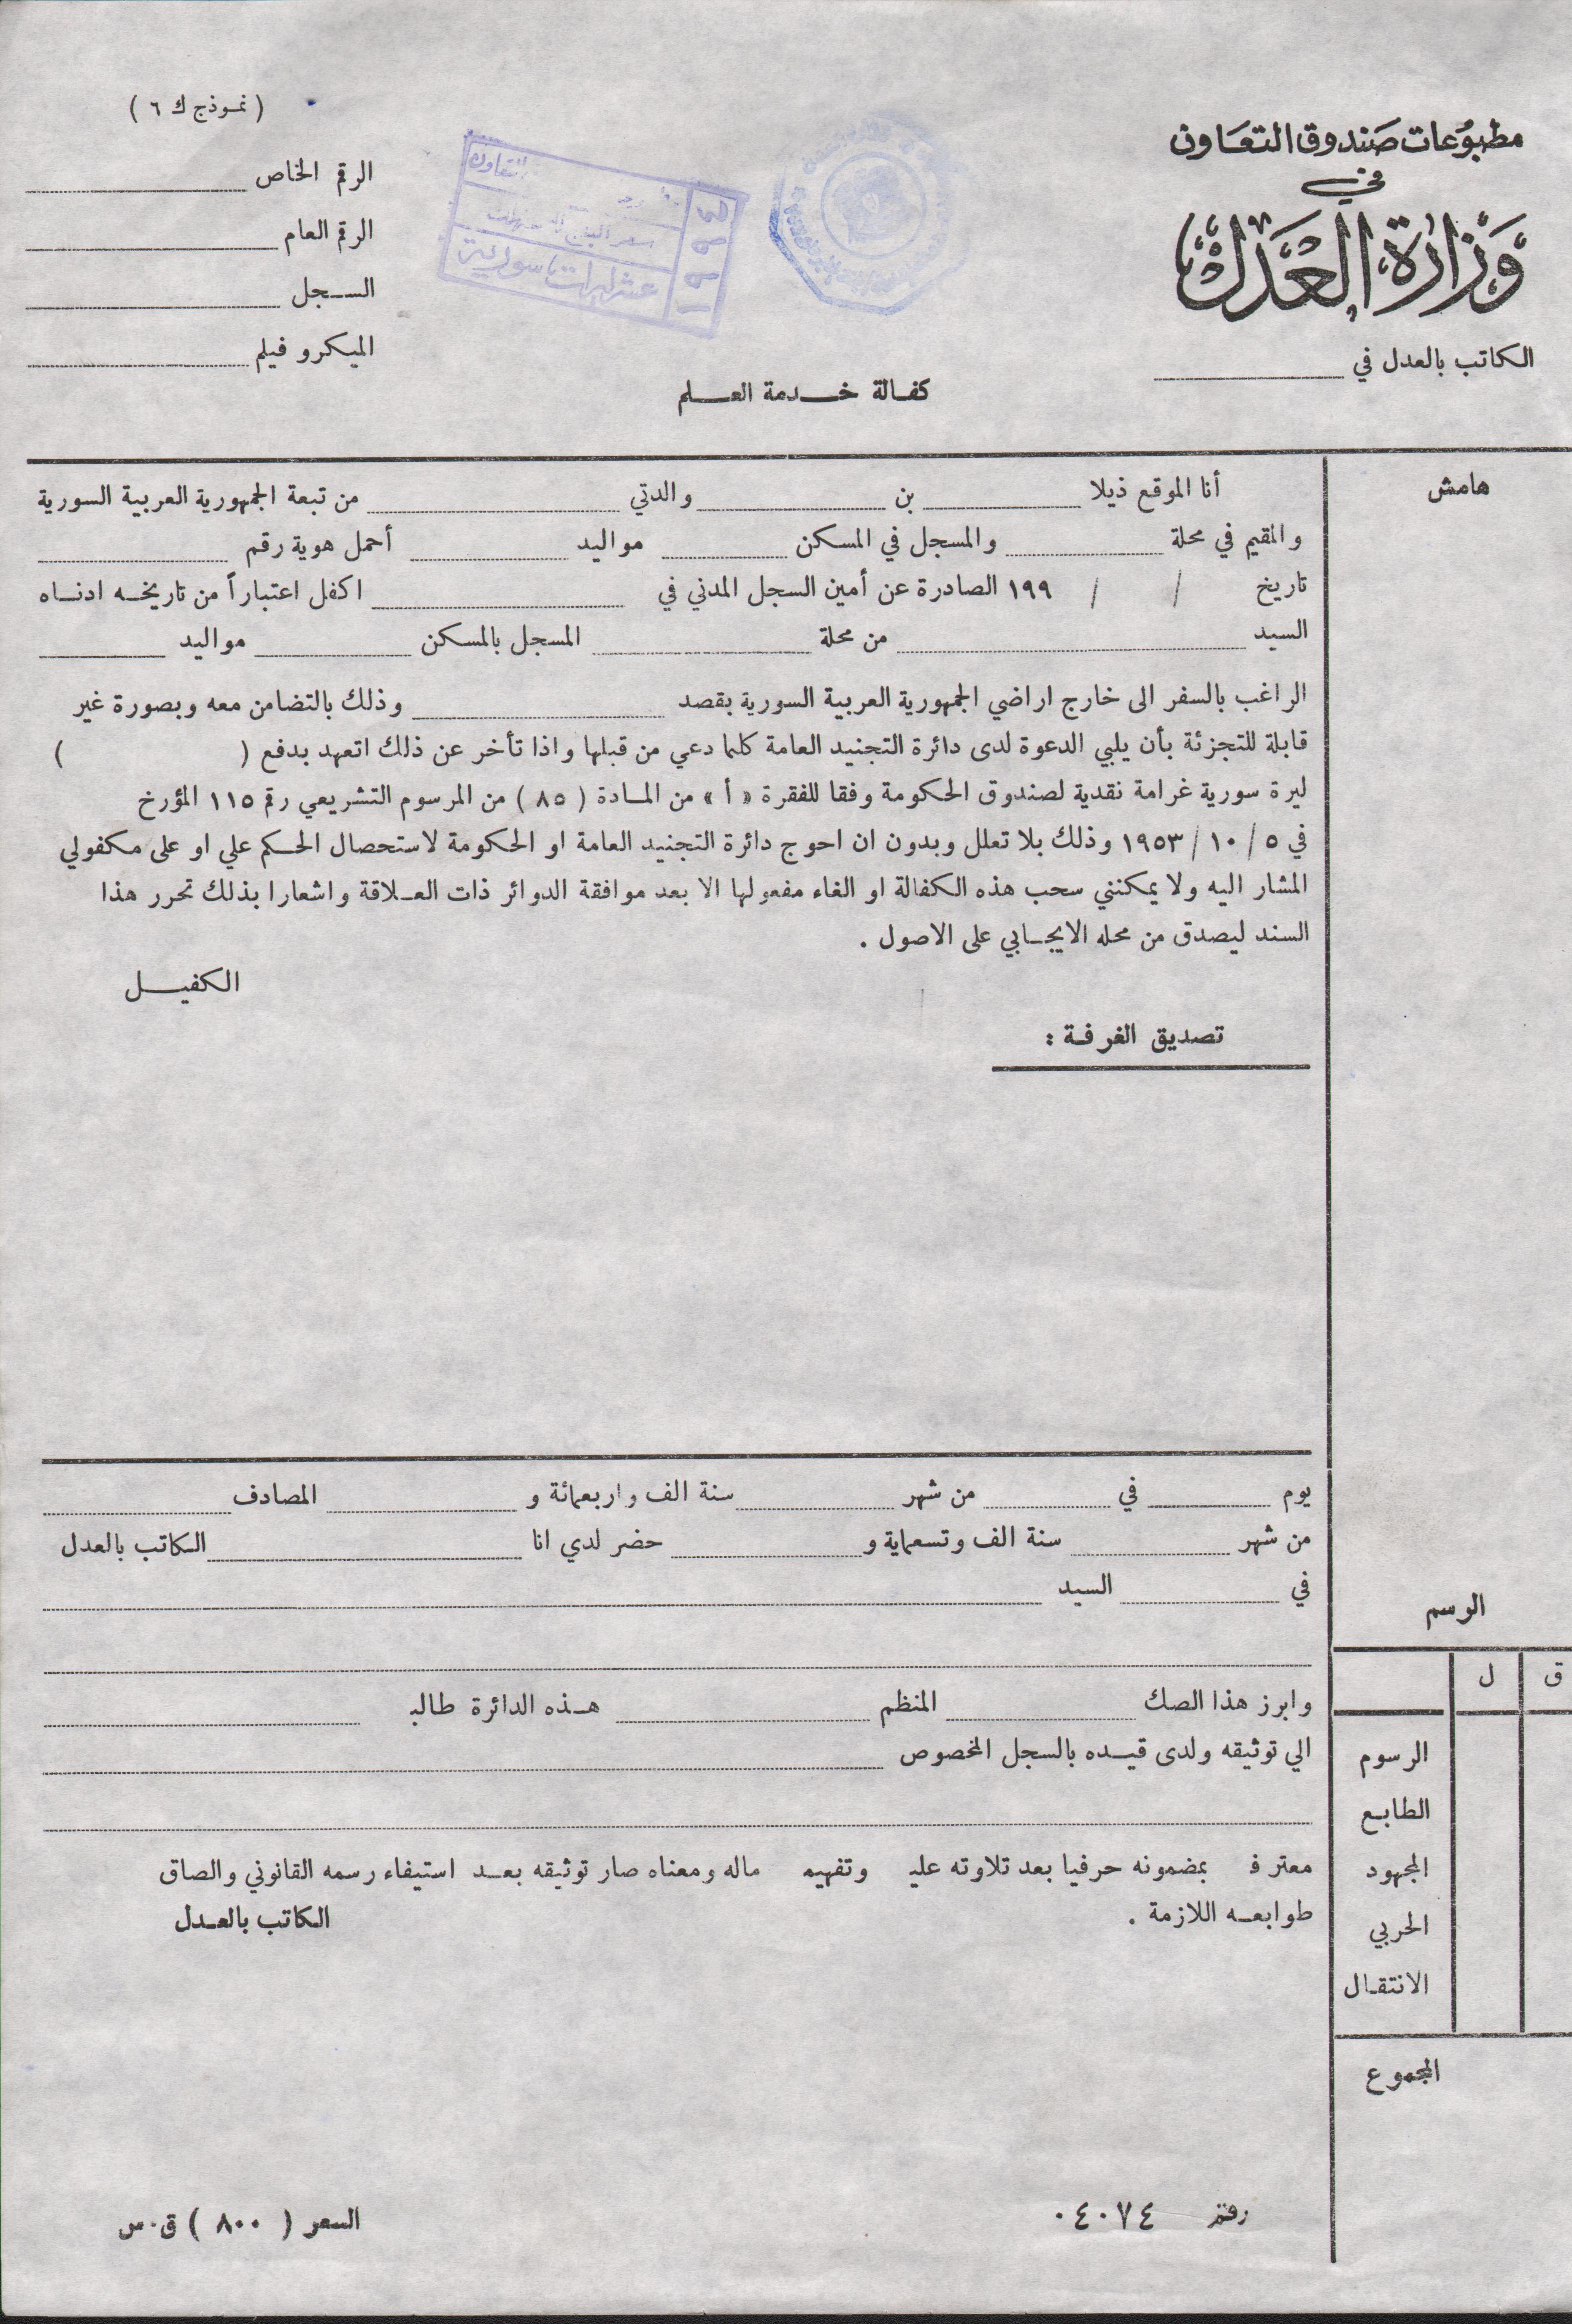 مطبوعات صندوق التعاون
في
وزارة العدل
الكاتب بالعدل في
( نموذج ك ٦ )
الرقم الخاص
الرقم العام
السجل
الميكرو فيلم
التعاون
عشر ليرات سورية
١٩٩٤
كفالة خدمة العلم
هامش
أنا الموقع ذيلا بن والدتي من تبعة الجمهورية العربية السورية
والمقيم في محلة والمسجل في المسكن مواليد أحمل هوية رقم
تاريخ / / ١٩٩ الصادرة عن أمين السجل المدني في اكفل اعتباراً من تاريخه ادناه
السيد من محلة المسجل بالمسكن مواليد
الراغب بالسفر الى خارج اراضي الجمهورية العربية السورية بقصد وذلك بالتضامن معه وبصورة غير
قابلة للتجزئة بأن يلبي الدعوة لدى دائرة التجنيد العامة كلما دعي من قبلها واذا تأخر عن ذلك اتعهد بدفع ( )
ليرة سورية غرامة نقدية لصندوق الحكومة وفقا للفقرة « أ » من المادة ( ٨٥ ) من المرسوم التشريعي رقم ١١٥ المؤرخ
في ٥ / ١٠ / ١٩٥٣ وذلك بلا تعلل وبدون ان احوج دائرة التجنيد العامة او الحكومة لاستحصال الحكم علي او على مكفولي
المشار اليه ولا يمكنني سحب هذه الكفالة او الغاء مفعولها الا بعد موافقة الدوائر ذات العلاقة واشعارا بذلك تحرر هذا
السند ليصدق من محله الايجابي على الاصول .
الكفيل
تصديق الغرفة :
يوم في من شهر سنة الف واربعمائة و المصادف
من شهر سنة الف وتسعماية و حضر لدي انا الكاتب بالعدل
في السيد
وابرز هذا الصك المنظم هذه الدائرة طالبـ
الي توثيقه ولدى قيده بالسجل المخصوص
معترفـ بمضمونه حرفيا بعد تلاوته عليـ وتفهيمـ ماله ومعناه صار توثيقه بعد استيفاء رسمه القانوني والصاق
طوابعه اللازمة .
الكاتب بالعدل
الرسم
ق ل
الرسوم
الطابع
المجهود
الحربي
الانتقال
المجموع
رقم ٠٤٠٧٤
السعر ( ٨٠٠ ) ق.س